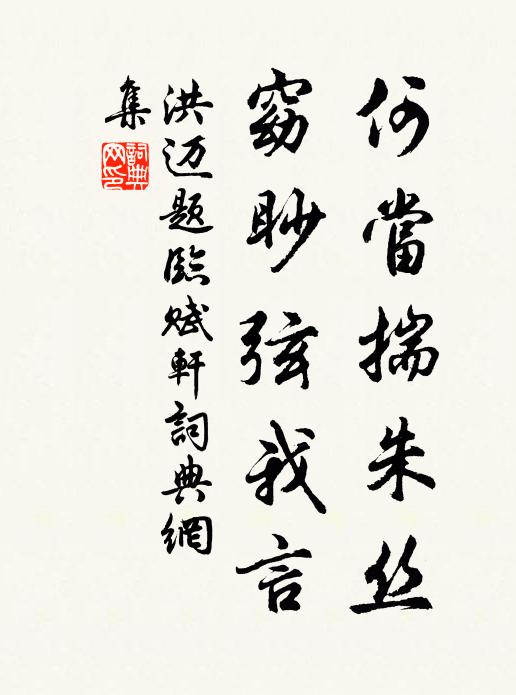 何當揣朱丝
窈眇弦我言
洪迈题臨赋軒詞典網
集
詞典
网印